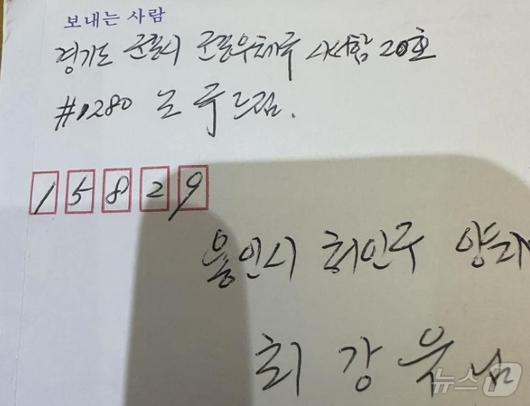 보내는 사람
경기도 군포시 군포우체국 사서함 20호
#1280 노 국 드림.
15829
용인시 처인구 양지
최 강 욱 님
뉴스1